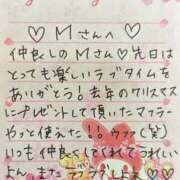 ♡Mさんへ♡
仲良しのMさん♡先日は
とっても楽しいラブタイムを
ありがとう！去年のクリスマス
にプレゼントして頂いたマフラー
やっと使えた！！ウフフ(笑)
いつも仲良くしてくれてうれしい
よん